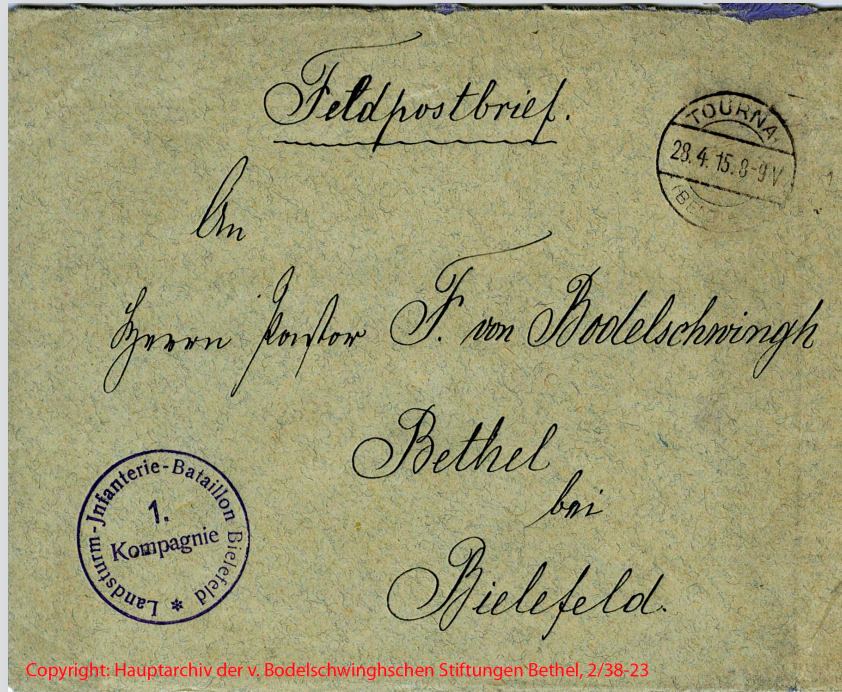 Feldpostbrief.
TOURNA
28.4.15.8-9V
An
Herrn Pastor F. von Bodelschwingh
Bethel
bei
Bielefeld.
Landsturm-Jnfanterie-Bataillon Bielefeld *
1.
Kompagnie
Copyright: Hauptarchiv der v. Bodelschwinghschen Stiftungen Bethel, 2/38-23